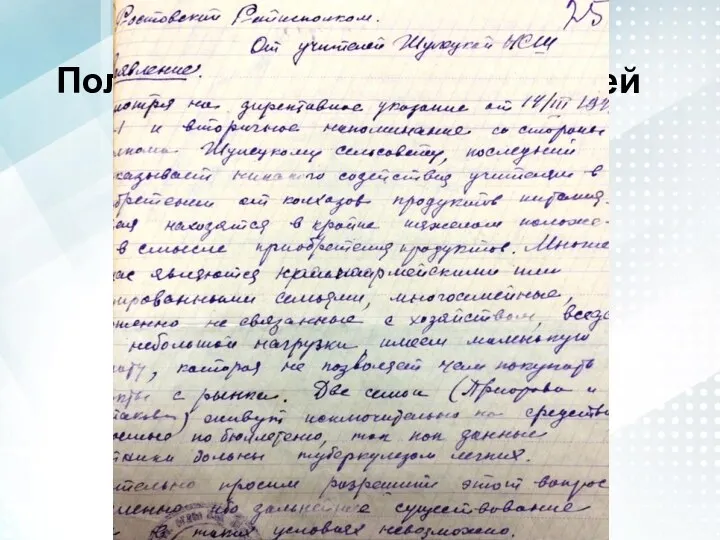 Ростовский Райисполком. 25
От учителей Шулецкой НСШ
Пол ей
явление.
мотря на директивное указание от 14/III 194
и вторичное напоминание со стороны
лкома Шулецкому сельсовету, последний
казывает никакого содействия учителям в
бретении от колхозов продуктов питания.
находятся в крайне тяжелом положе-
в смысле приобретения продуктов. Многие
нас являются красноармейскими или
ированными семьями, многосемейные,
ршенно не связанные с хозяйством, всегда
небольшой нагрузки имеем маленькую
ату, которая не позволяет нам покупать
кты с рынка. Две семьи (Приорова и
такова) живут исключительно на средства
по бюллетеню, так как данные
ники больны туберкулезом легких.
тельно просим разрешить этот вопрос
ленно, ибо дальнейшее существование
в таких условиях невозможно.